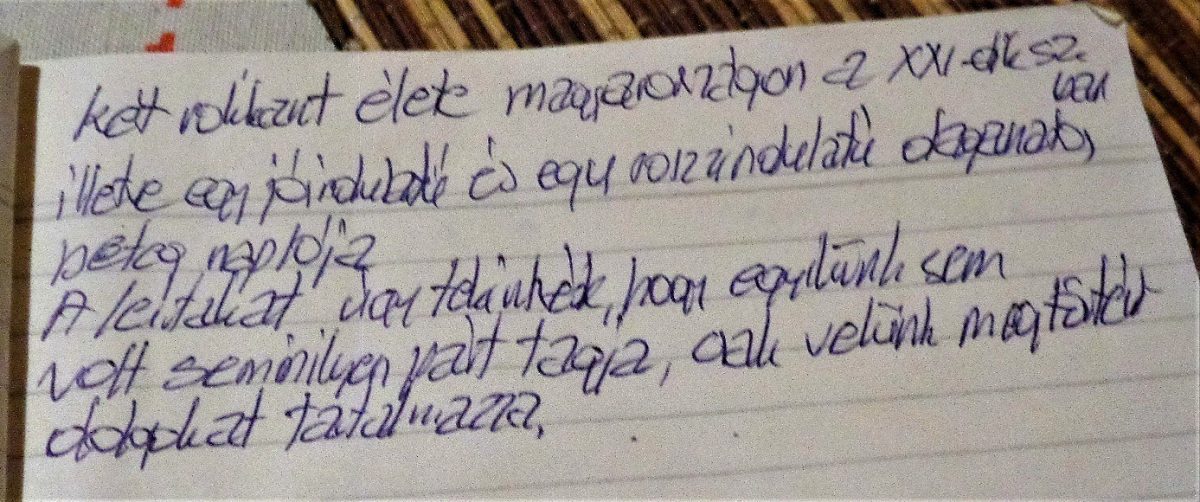 két rokkant élete magyarországon a XXI-dik sz.
ban
illetve egy jóindulatú és egy rosszindulatú daganatos
beteg naplója
A leírtakat úgy tekintsék, hogy egyikünk sem
volt semmilyen párt tagja, csak velünk megtörtént
dolgokat tartalmazza.